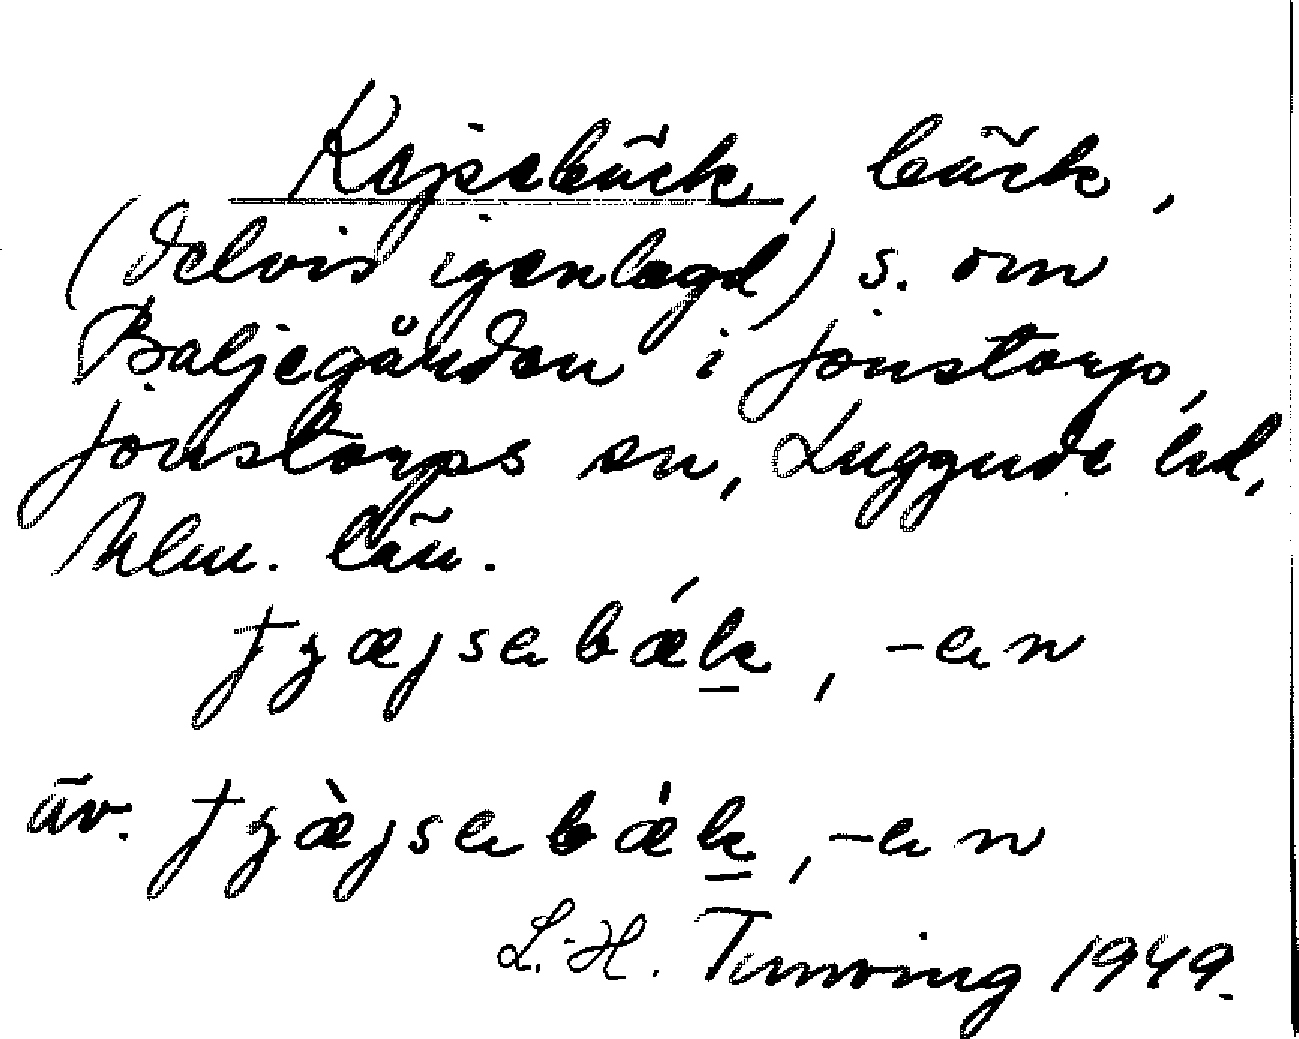 Kejsebäck, bäck,
(delvis igenlagd) s. om
Baljegården i Jonstorp,
Jonstorps sn, Luggude hd,
Mlm. län.
ɟʒæjsebǽk, -en
äv. ɟʒæ̀jsebæ̍k, -en
L.-H. Tunving 1949.